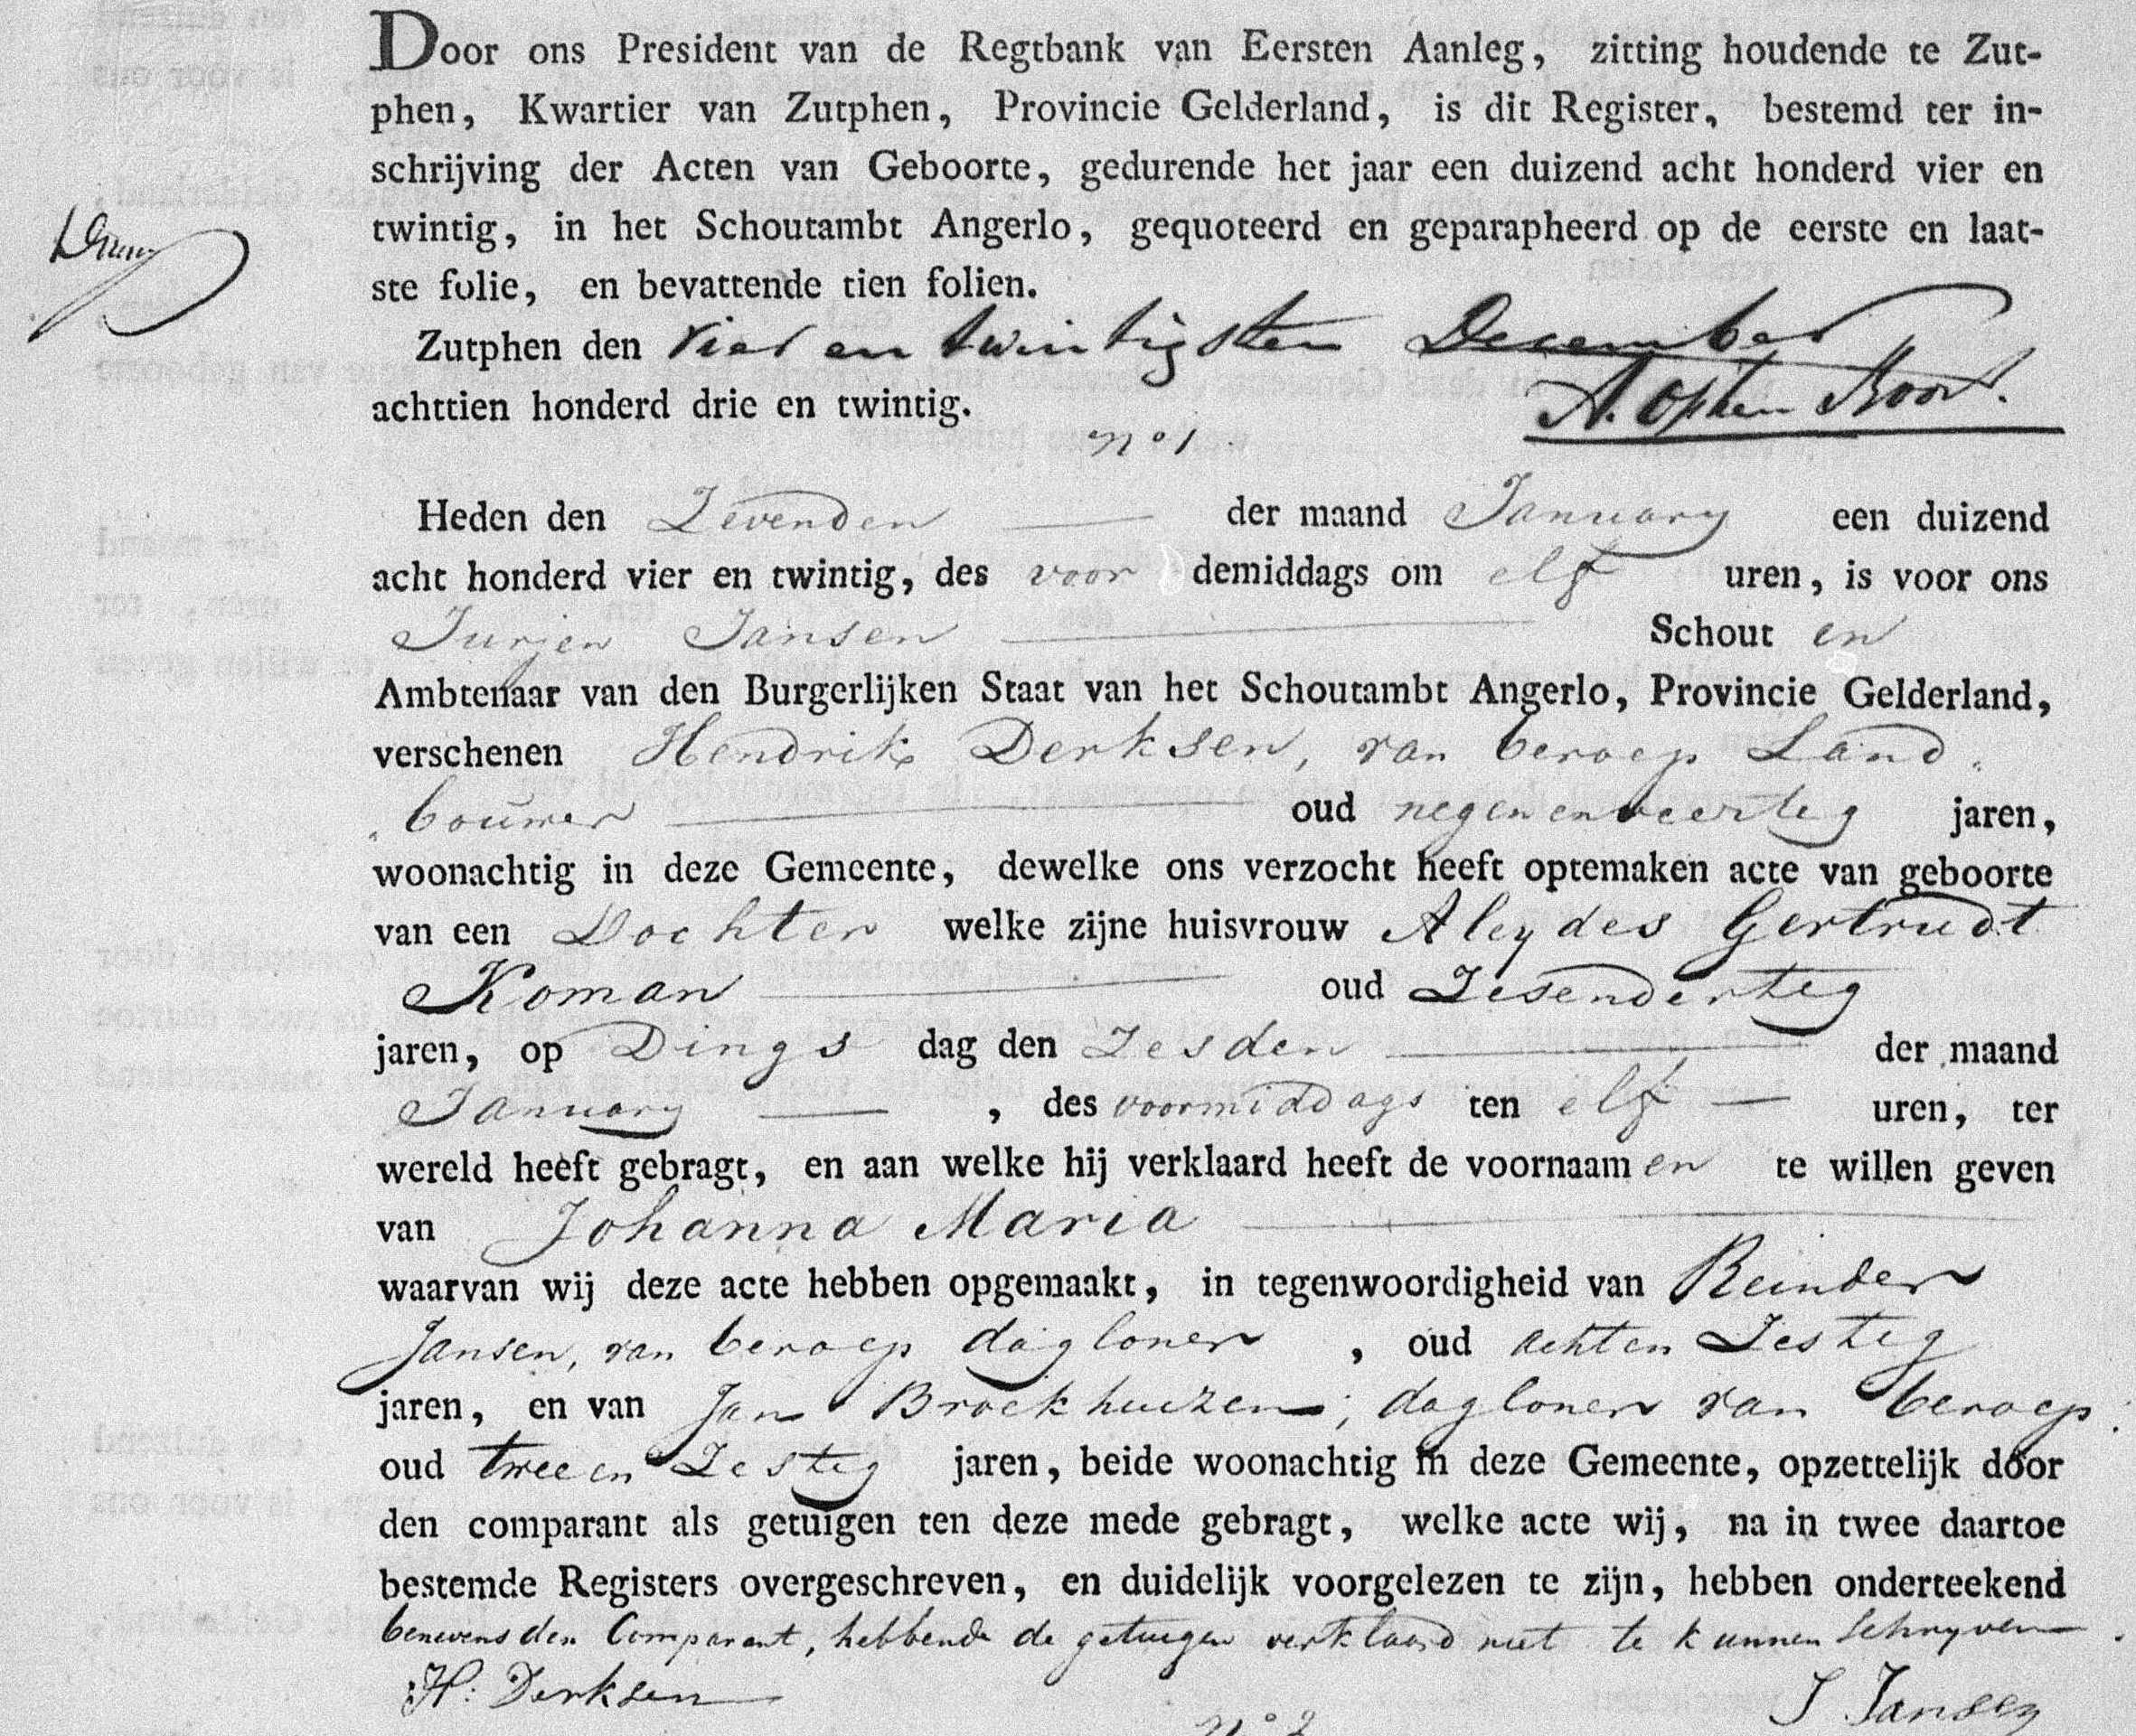 Door ons President van de Regtbank van Eersten Aanleg, zitting houdende te Zut-
phen, Kwartier van Zutphen, Provincie Gelderland, is dit Register, bestemd ter in-
schrijving der Acten van Geboorte, gedurende het jaar een duizend acht honderd vier en
twintig, in het Schoutambt Angerlo, gequoteerd en geparapheerd op de eerste en laat-
ste folie, en bevattende tien folien.
Zutphen den vier en twintigsten December
achttien honderd drie en twintig.
A. Opten Noort.
No 1
Heden den Zevenden der maand January een duizend
acht honderd vier en twintig, des voor demiddags om elf uren, is voor ons
Jurjen Jansen Schout en
Ambtenaar van den Burgerlijken Staat van het Schoutambt Angerlo, Provincie Gelderland,
verschenen Hendrik Derksen, van beroep Land„
„bouwer oud negenenveertig jaren,
woonachtig in deze Gemeente, dewelke ons verzocht heeft optemaken acte van geboorte
van een Dochter welke zijne huisvrouw Aleydes Gertrudt
Koman oud Zesendertig
jaren, op Dings dag den Zesden der maand
January , des voormiddags ten elf uren, ter
wereld heeft gebragt, en aan welke hij verklaard heeft de voornaam en te willen geven
van Johanna Maria
waarvan wij deze acte hebben opgemaakt, in tegenwoordigheid van Reinder
Jansen, van beroep dagloner , oud achten Zestig
jaren, en van Jan Broekhuizen, dagloner van beroep
oud tweeen Zestig jaren, beide woonachtig in deze Gemeente, opzettelijk door
den comparant als getuigen ten deze mede gebragt, welke acte wij, na in twee daartoe
bestemde Registers overgeschreven, en duidelijk voorgelezen te zijn, hebben onderteekend
benevens den Comparant, hebbende de getuigen verklaard niet te kunnen schryven.
H: Derksen J Jansen
No 2